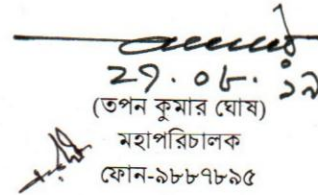 ২৭.০৮.১৯
(তপন কুমার ঘোষ)
মহাপরিচালক
ফোন-৯৮৮৭৮৯৫